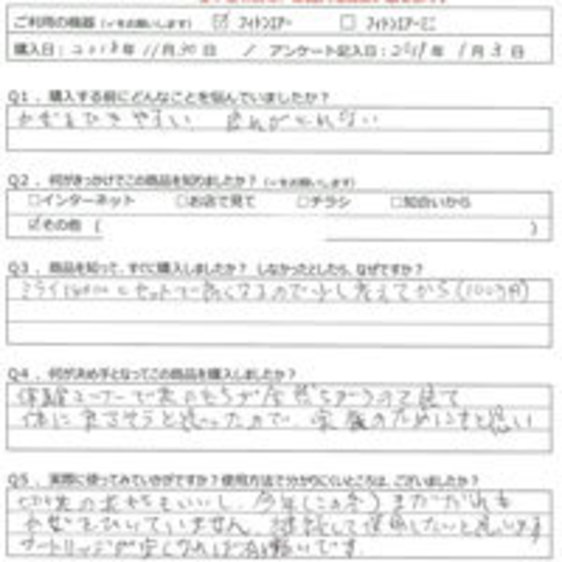 ご利用の機器（✓をお願いします） ☑ フィトンエアー □ フィトンエアーミニ
購入日：2018年11月30日 / アンケート記入日：2019年1月3日
Q1．購入する前にどんなことを悩んでいましたか？
かぜをひきやすい 疲れがとれない
Q2．何がきっかけでこの商品を知りましたか？（✓をお願いします）
□インターネット □お店で見て □チラシ □知合いから
☑その他（ ）
Q3．商品を知って、すぐに購入しましたか？ しなかったとしたら、なぜですか？
セットで高くなるので少し考えてから（100万円）
Q4．何が決め手となってこの商品を購入しましたか？
体験コーナーで
体に良さそうと思ったので、家族のためにもと思い
Q5．実際に使ってみていかがですか？使用方法で分かりにくいところは、ございましたか？
もいいし、今年（この冬）まだだれも
かぜをひいていません。継続して使用したいと思います
カートリッジが安くなれば有難いです。